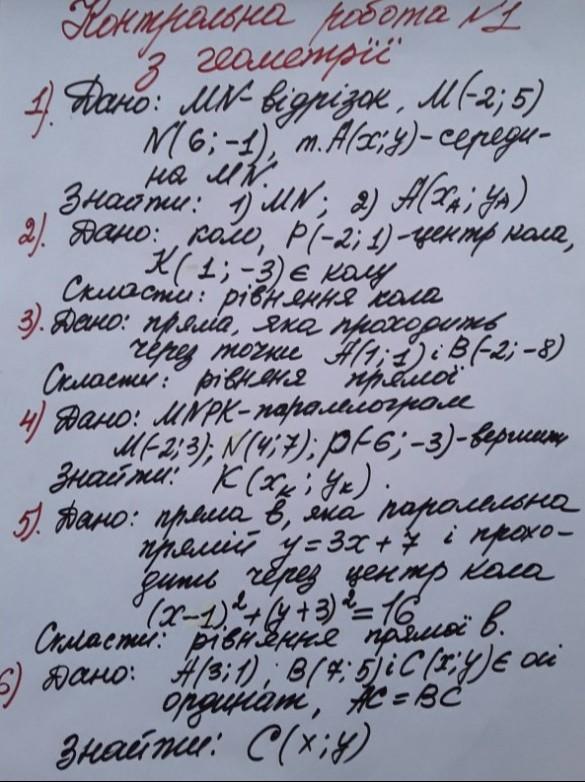 Контрольна робота №1
з геометрії
1). Дано: MN-відрізок, M(-2; 5)
N(6; -1), т.A(x; y)-середи-
на MN.
Знайти: 1) MN; 2) A(xA; yA)
2). Дано: коло, P(-2; 1)-центр кола,
K(1; -3) є колу
Скласти: рівняння кола
3). Дано: пряма, яка проходить
через точки A(1; 1) і B(-2; -8)
Скласти: рівняня прямої
4) Дано: MNPK-паралелограм
M(-2; 3); N(4; 7); P(-6; -3)-вершини
Знайти: K(xK; yK).
5). Дано: пряма в, яка паралельна
прямій y = 3x + 7 і прохо-
дить через центр кола
(x-1)² + (y+3)² = 16
Скласти: рівняння прямої в.
6) Дано: A(3; 1), B(7; 5) і C(x; y) є осі
ординат, AC = BC
Знайти: C(x; y)